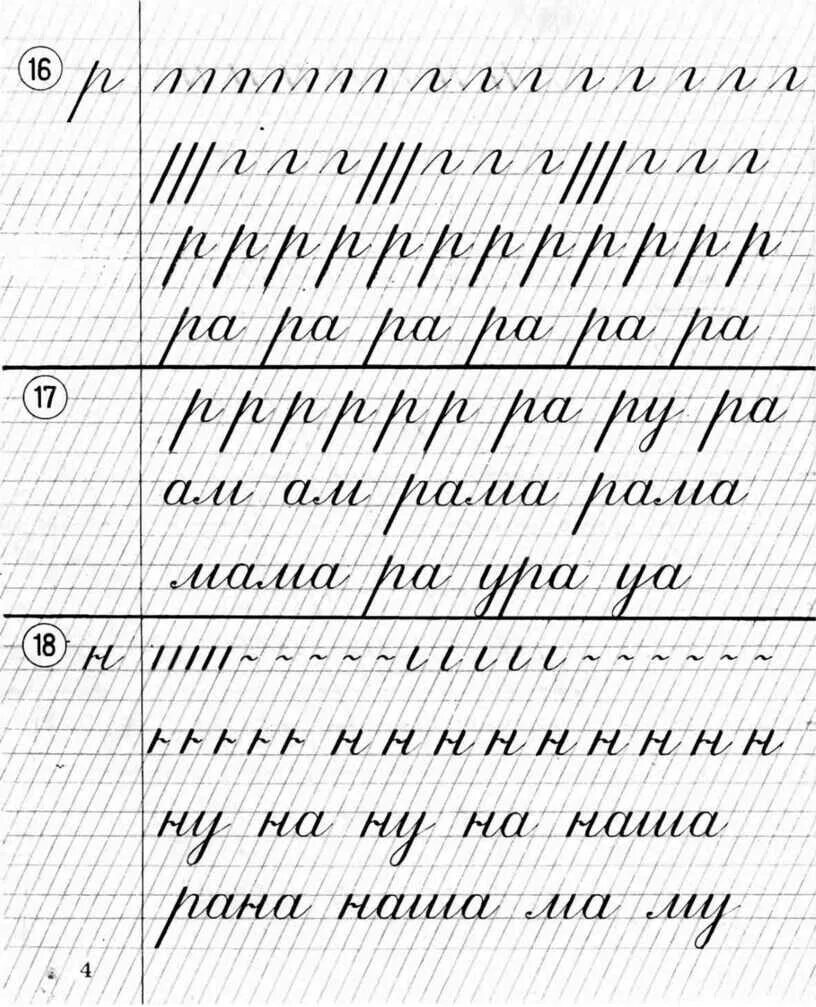 16 р
р р р р р р р р р р р р
ра ра ра ра ра ра
17 р р р р р р ра ру ра
ам ам рама рама
мама ра ура уа
18 н
н н н н н н н н н
ну на ну на наша
рана наша ма му
4